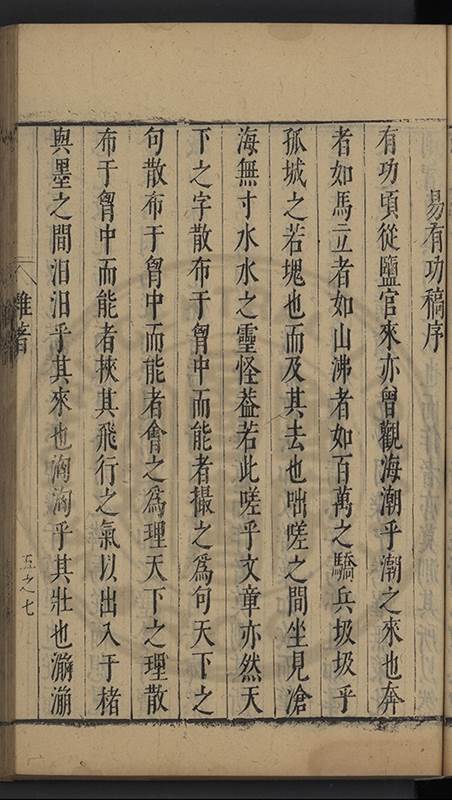 易有功稿序
有功頃從鹽官來亦曾觀海潮乎潮之來也奔
者如馬立者如山沸者如百萬之驕兵圾圾乎
孤城之若塊也而及其去也咄嗟之間坐見滄
海無寸水水之靈怪葢若此嗟乎文章亦然天
下之字散布于胷中而能者撮之爲句天下之
句散布于胷中而能者會之爲理天下之理散
布于胷中而能者挾其飛行之氣以出入于楮
與墨之間汨汨乎其來也洶洶乎其壯也瀰瀰
雜著
五之七